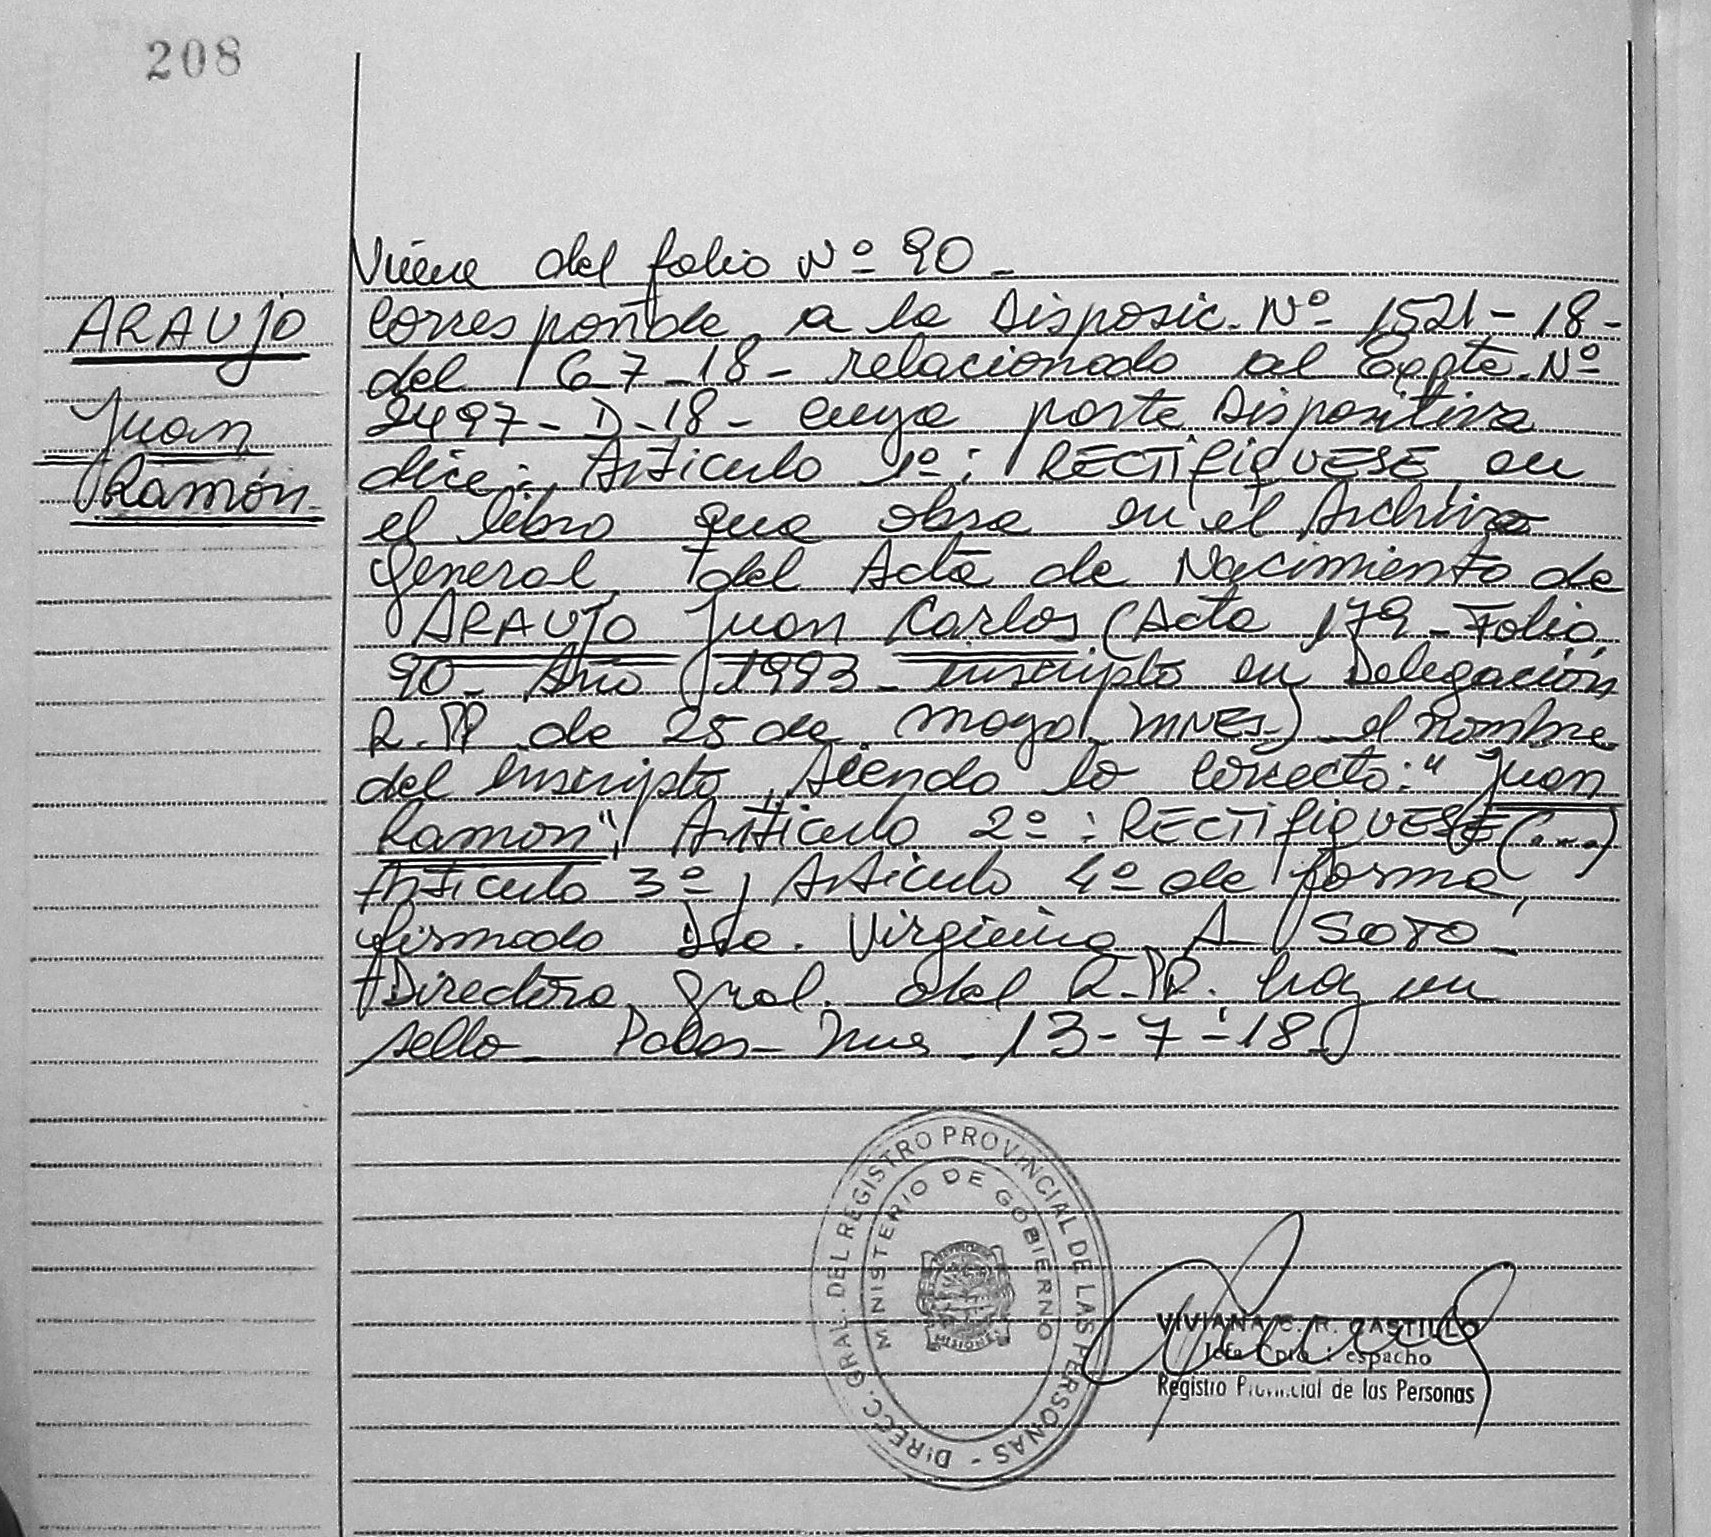 208
Viene del folio Nº 90-
ARAUJO
Juan
Ramón-
corresponde a la Disposic. Nº 1521-18-
del 6-7-18- relacionado al Expte. Nº
2497-D-18- cuya parte Dispositiva
dice: Artículo 1º: RECTIFIQUESE en
el libro que obra en el Archivo
General, del Acta de Nacimiento de
ARAUJO Juan Carlos (Acta 179-Folio
90- Año 1993- inscripto en Delegación
R.PP de 25 de mayo MNES-) el nombre
del inscripto, siendo lo correcto: "Juan
Ramon", Artículo 2º: RECTIFIQUESE (...)
Artículo 3º, Artículo 4º de forma,
firmado Dra. Virginia A SOTO-
Directora Gral. del R.PP. hay un
sello- Pdas- Mnes- 13-7-18-
DIRECC. GRAL. DEL REGISTRO PROVINCIAL DE LAS PERSONAS -
MINISTERIO DE GOBIERNO
MISIONES
VIVIANA C. R. CASTILLO
Jefa Dpto espacho
Registro Provincial de las Personas